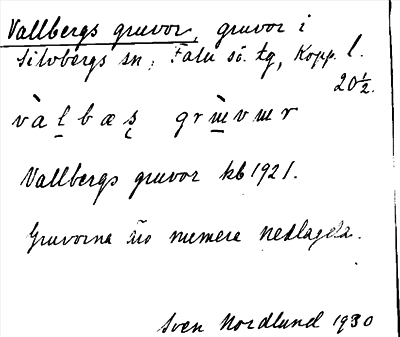 Vallbergs gruvor, gruvor i
Silvbergs sn, Falu sö. tg, Kopp. l.
20½.
vàl̲bæş grɯ̀vɯr
Vallbergs gruvor kb 1921.
Gruvorna äro numera nedlagda.
Sven Nordlund 1930